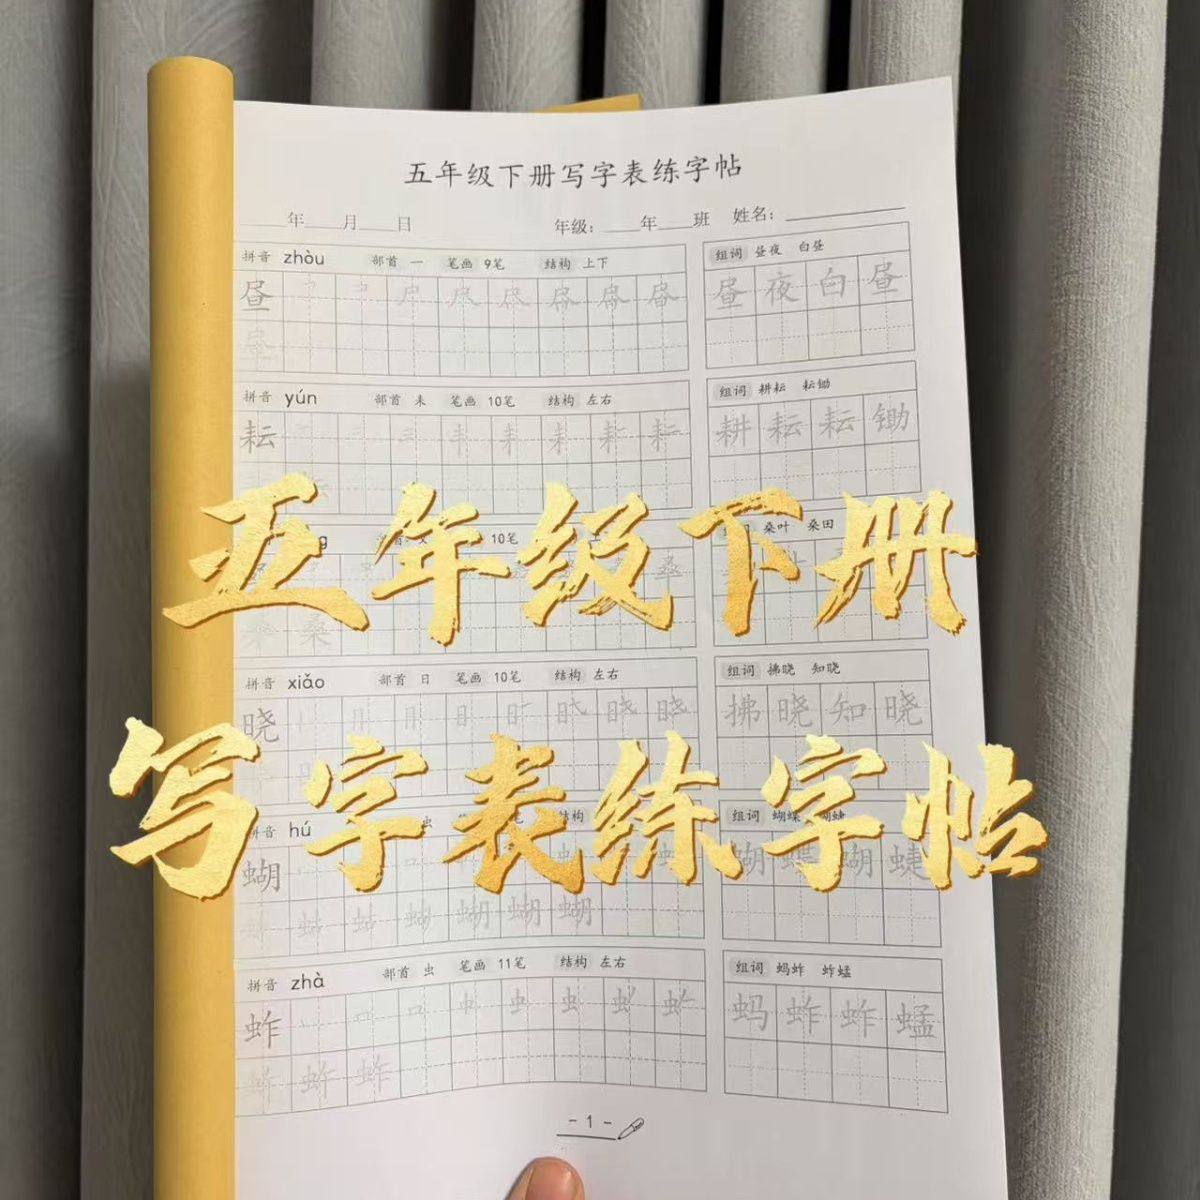 五年级下册写字表练字帖
年 月 日 年级： 年 班 姓名：
拼音 zhòu 部首 一 笔画 9笔 结构 上下 组词 昼夜 白昼
昼 昼夜白昼
拼音 yún 部首 耒 笔画 10笔 结构 左右 组词 耕耘 耘锄
耘 耕耘耘锄
五年级下册
10笔 桑叶 桑田
桑
拼音 xiǎo 部首 日 笔画 10笔 结构 左右 组词 拂晓 知晓
晓 拂晓知晓
写字表练字帖
拼音 hú 虫 笔 结构 组词 蝴蝶
蝴 蝴蝶蝴蜨
蝴
拼音 zhà 部首 虫 笔画 11笔 结构 左右 组词 蚂蚱 蚱蜢
蚱 蚂蚱蚱蜢
蚱 蚱 蚱
- 1 -